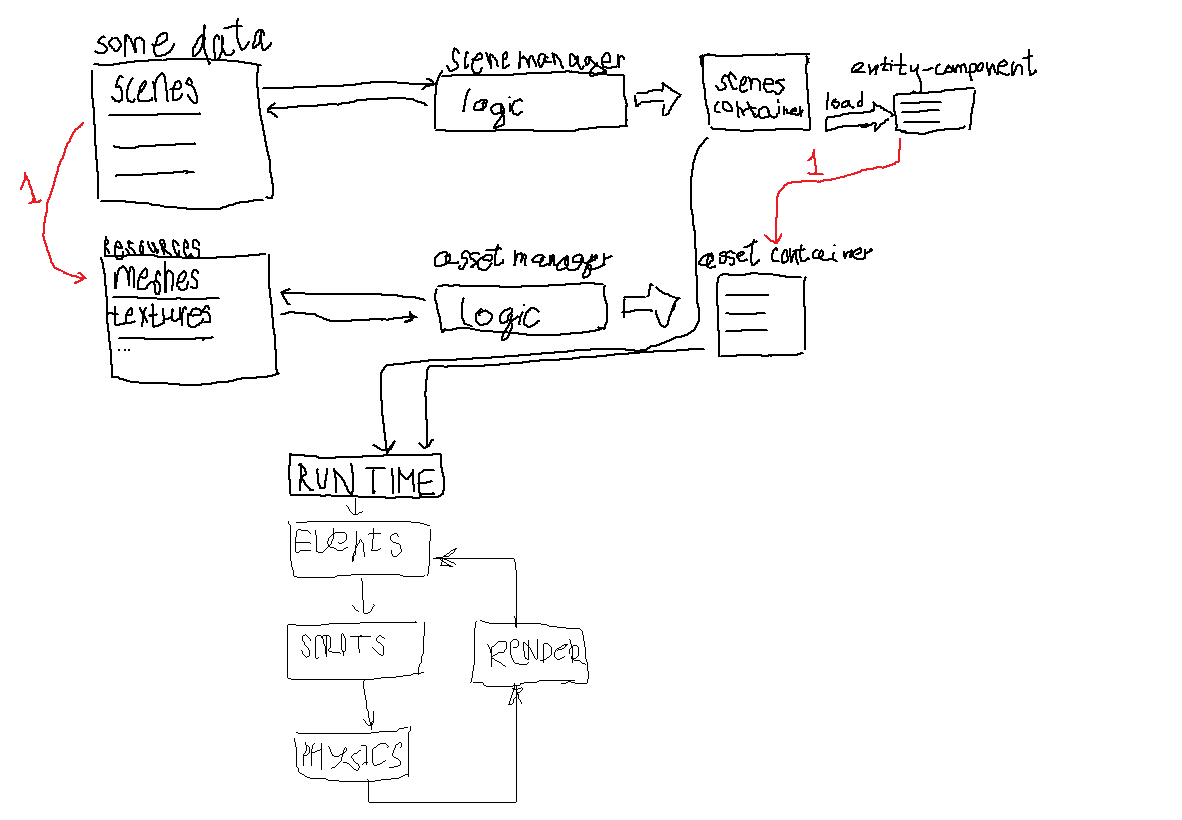 some data
scenes
scene manager
logic
scenes
container
load
entity-component
1
1
Resources
meshes
textures
...
asset manager
logic
asset container
RUNTIME
EVENTS
SCRIPTS
PHYSICS
RENDER